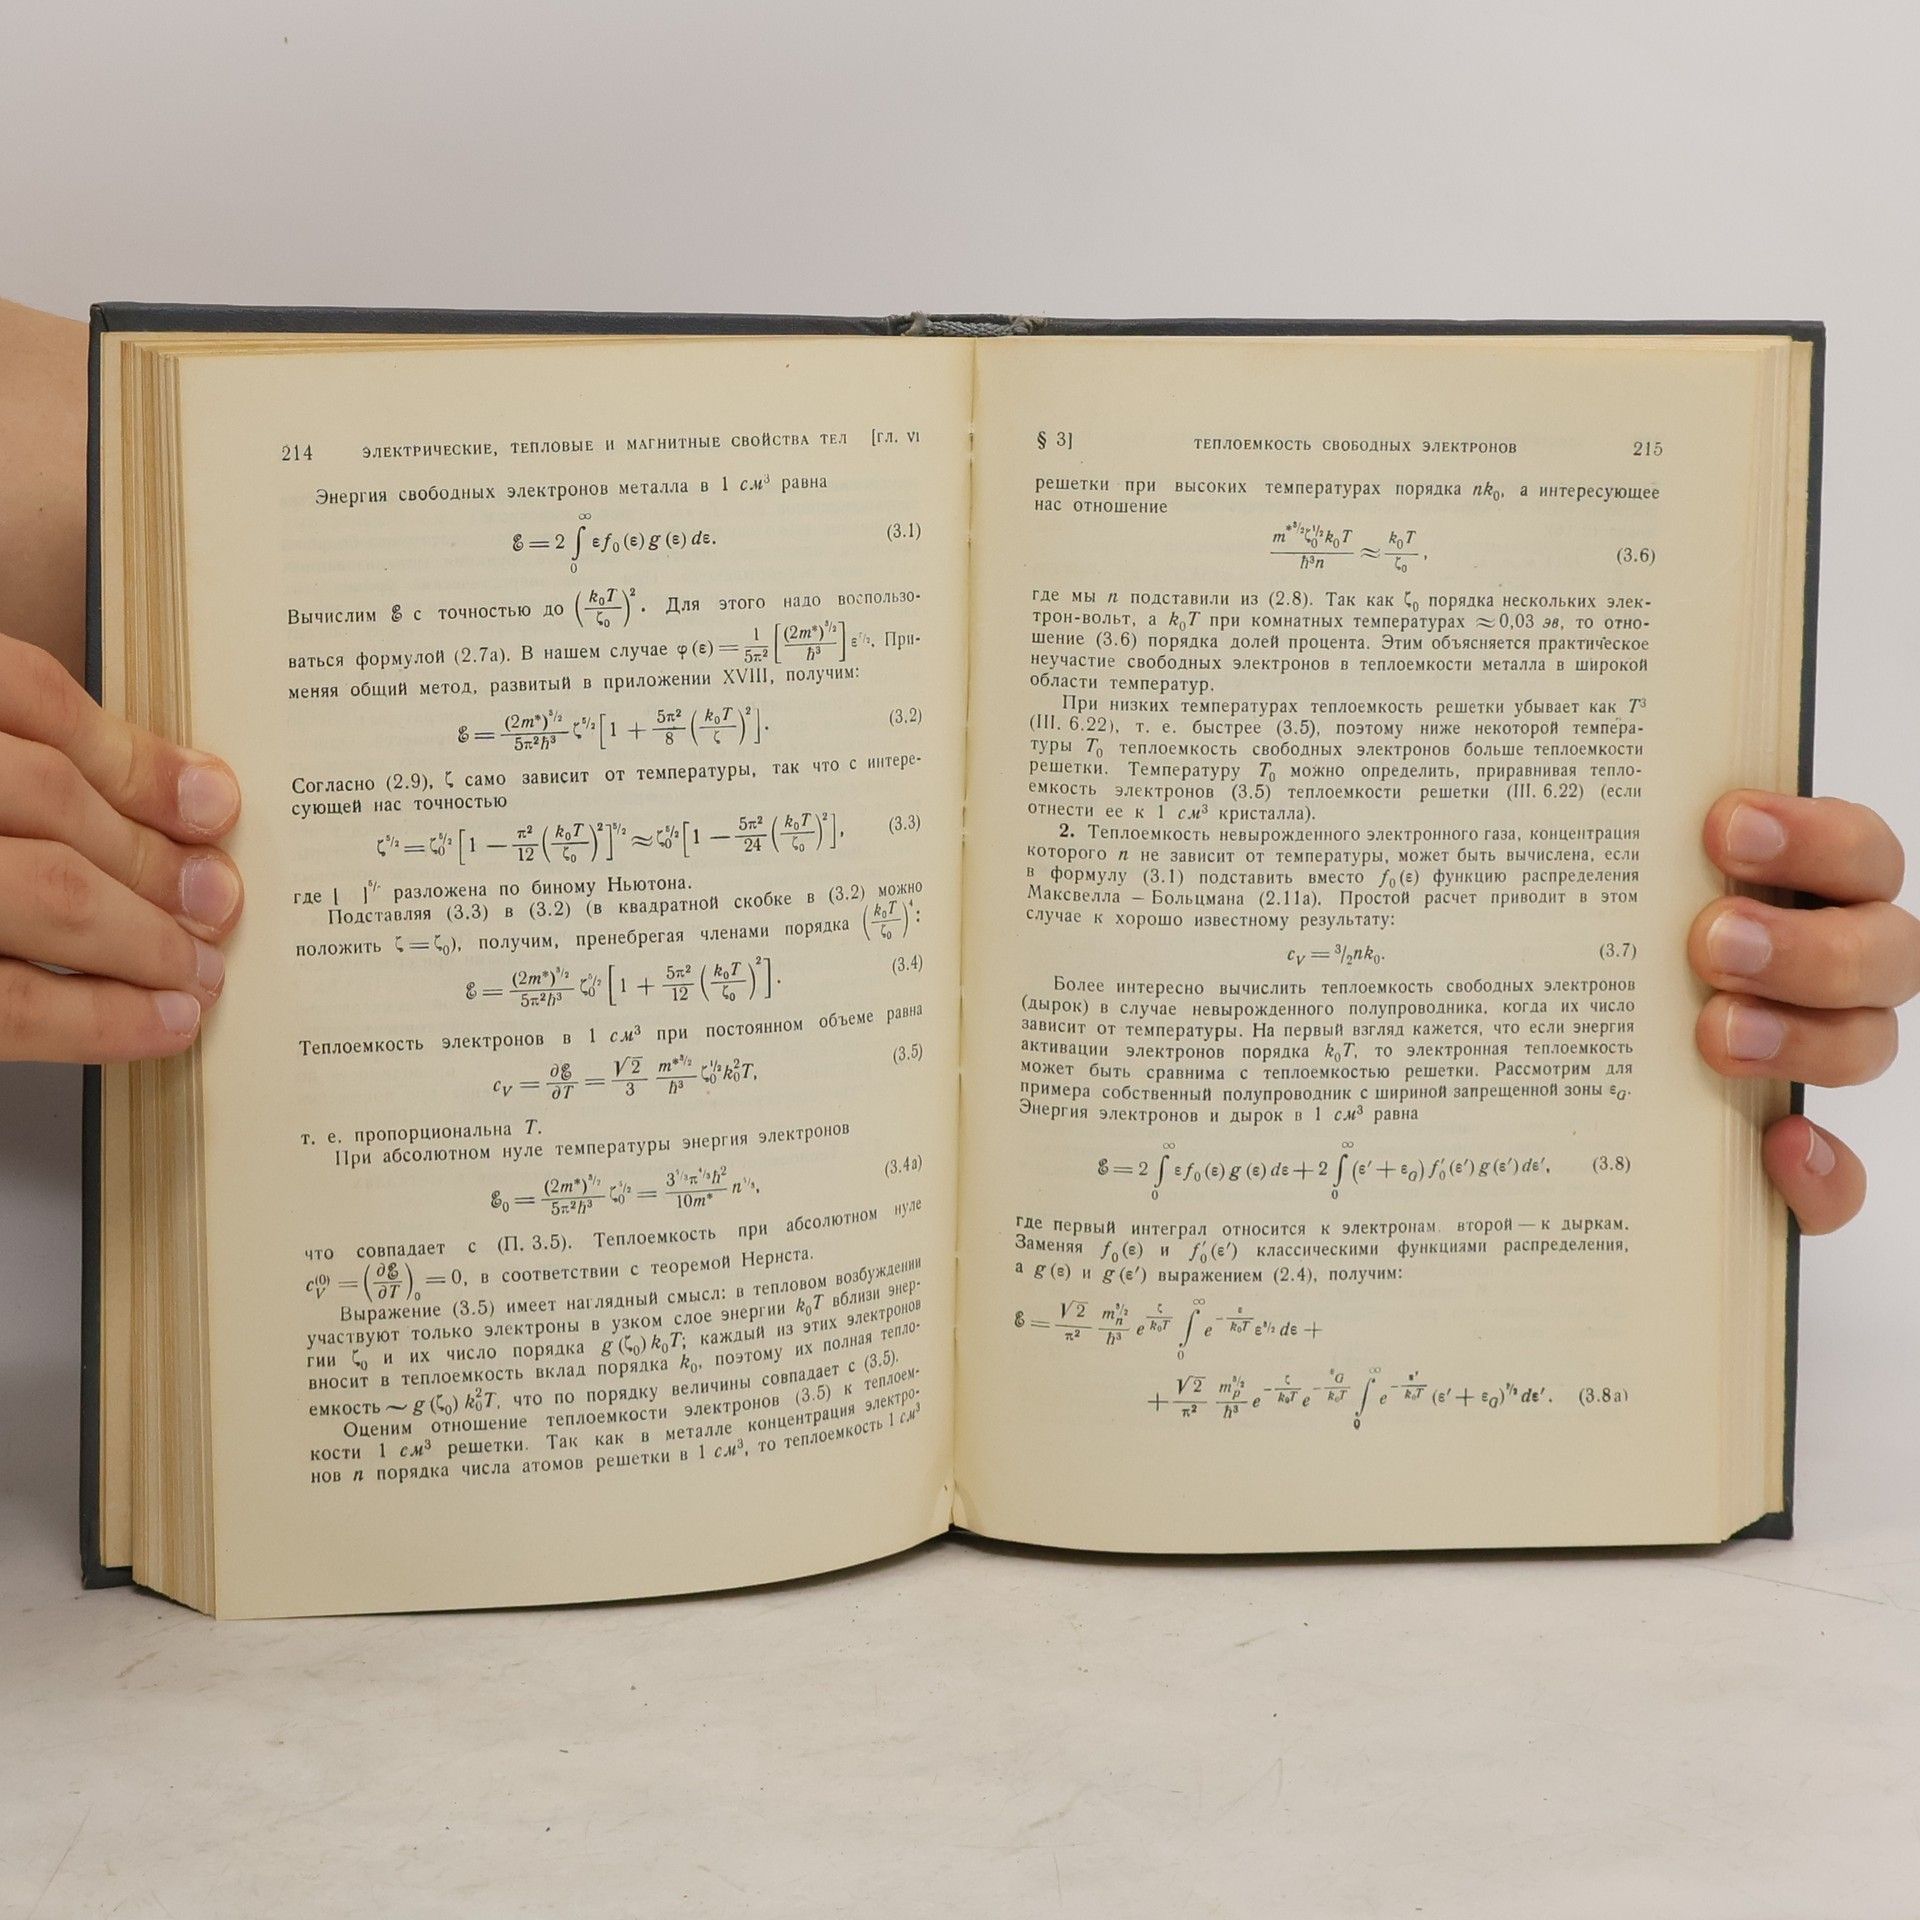 214 ЭЛЕКТРИЧЕСКИЕ, ТЕПЛОВЫЕ И МАГНИТНЫЕ СВОЙСТВА ТЕЛ [ГЛ. VI
Энергия свободных электронов металла в 1 см³ равна
ℰ = 2 ∫₀^∞ εf₀(ε) g(ε) dε. (3.1)
Вычислим ℰ с точностью до (k₀T/ζ₀)². Для этого надо воспользо-
ваться формулой (2.7а). В нашем случае φ(ε) = 1/5π² [(2m*)^3/2/ħ³] ε^5/2. При-
меняя общий метод, развитый в приложении XVIII, получим:
ℰ = (2m*)^3/2/5π²ħ³ ζ^5/2 [1 + 5π²/8 (k₀T/ζ)²]. (3.2)
Согласно (2.9), ζ само зависит от температуры, так что с интере-
сующей нас точностью
ζ^5/2 = ζ₀^5/2 [1 − π²/12 (k₀T/ζ₀)²]^5/2 ≈ ζ₀^5/2 [1 − 5π²/24 (k₀T/ζ₀)²], (3.3)
где [ ]^5/2 разложена по биному Ньютона.
Подставляя (3.3) в (3.2) (в квадратной скобке в (3.2) можно
положить ζ = ζ₀), получим, пренебрегая членами порядка (k₀T/ζ₀)⁴:
ℰ = (2m*)^3/2/5π²ħ³ ζ₀^5/2 [1 + 5π²/12 (k₀T/ζ₀)²]. (3.4)
Теплоемкость электронов в 1 см³ при постоянном объеме равна
c_V = ∂ℰ/∂T = √2/3 m*^3/2/ħ³ ζ₀^1/2 k₀²T, (3.5)
т. е. пропорциональна T.
При абсолютном нуле температуры энергия электронов
ℰ₀ = (2m*)^3/2/5π²ħ³ ζ₀^5/2 = 3^5/3 π^4/3 ħ²/10m* n^5/3, (3.4а)
что совпадает с (П. 3.5). Теплоемкость при абсолютном нуле
c_V^(0) = (∂ℰ/∂T)₀ = 0, в соответствии с теоремой Нернста.
Выражение (3.5) имеет наглядный смысл: в тепловом возбуждении
участвуют только электроны в узком слое энергии k₀T вблизи энер-
гии ζ₀ и их число порядка g(ζ₀) k₀T; каждый из этих электронов
вносит в теплоемкость вклад порядка k₀, поэтому их полная тепло-
емкость ~ g(ζ₀) k₀²T, что по порядку величины совпадает с (3.5).
Оценим отношение теплоемкости электронов (3.5) к теплоем-
кости 1 см³ решетки. Так как в металле концентрация электро-
нов n порядка числа атомов решетки в 1 см³, то теплоемкость 1 см³
§ 3] ТЕПЛОЕМКОСТЬ СВОБОДНЫХ ЭЛЕКТРОНОВ 215
решетки при высоких температурах порядка nk₀, а интересующее
нас отношение
m*^3/2 ζ₀^1/2 k₀T/ħ³n ≈ k₀T/ζ₀, (3.6)
где мы n подставили из (2.8). Так как ζ₀ порядка нескольких элек-
трон-вольт, а k₀T при комнатных температурах ≈ 0,03 эв, то отно-
шение (3.6) порядка долей процента. Этим объясняется практическое
неучастие свободных электронов в теплоемкости металла в широкой
области температур.
При низких температурах теплоемкость решетки убывает как T³
(III. 6.22), т. е. быстрее (3.5), поэтому ниже некоторой темпера-
туры T₀ теплоемкость свободных электронов больше теплоемкости
решетки. Температуру T₀ можно определить, приравнивая тепло-
емкость электронов (3.5) теплоемкости решетки (III. 6.22) (если
отнести ее к 1 см³ кристалла).
2. Теплоемкость невырожденного электронного газа, концентрация
которого n не зависит от температуры, может быть вычислена, если
в формулу (3.1) подставить вместо f₀(ε) функцию распределения
Максвелла – Больцмана (2.11а). Простой расчет приводит в этом
случае к хорошо известному результату:
c_V = 3/2 nk₀. (3.7)
Более интересно вычислить теплоемкость свободных электронов
(дырок) в случае невырожденного полупроводника, когда их число
зависит от температуры. На первый взгляд кажется, что если энергия
активации электронов порядка k₀T, то электронная теплоемкость
может быть сравнима с теплоемкостью решетки. Рассмотрим для
примера собственный полупроводник с шириной запрещенной зоны ε_G.
Энергия электронов и дырок в 1 см³ равна
ℰ = 2 ∫₀^∞ εf₀(ε) g(ε) dε + 2 ∫₀^∞ (ε′ + ε_G) f₀′(ε′) g(ε′) dε′, (3.8)
где первый интеграл относится к электронам, второй — к дыркам.
Заменяя f₀(ε) и f₀′(ε′) классическими функциями распределения,
а g(ε) и g(ε′) выражением (2.4), получим:
ℰ = √2/π² m_n^3/2/ħ³ e^(ζ/k₀T) ∫₀^∞ e^(−ε/k₀T) ε^3/2 dε +
+ √2/π² m_p^3/2/ħ³ e^(−ζ/k₀T) e^(−ε_G/k₀T) ∫₀^∞ e^(−ε′/k₀T) (ε′ + ε_G)^3/2 dε′. (3.8а)